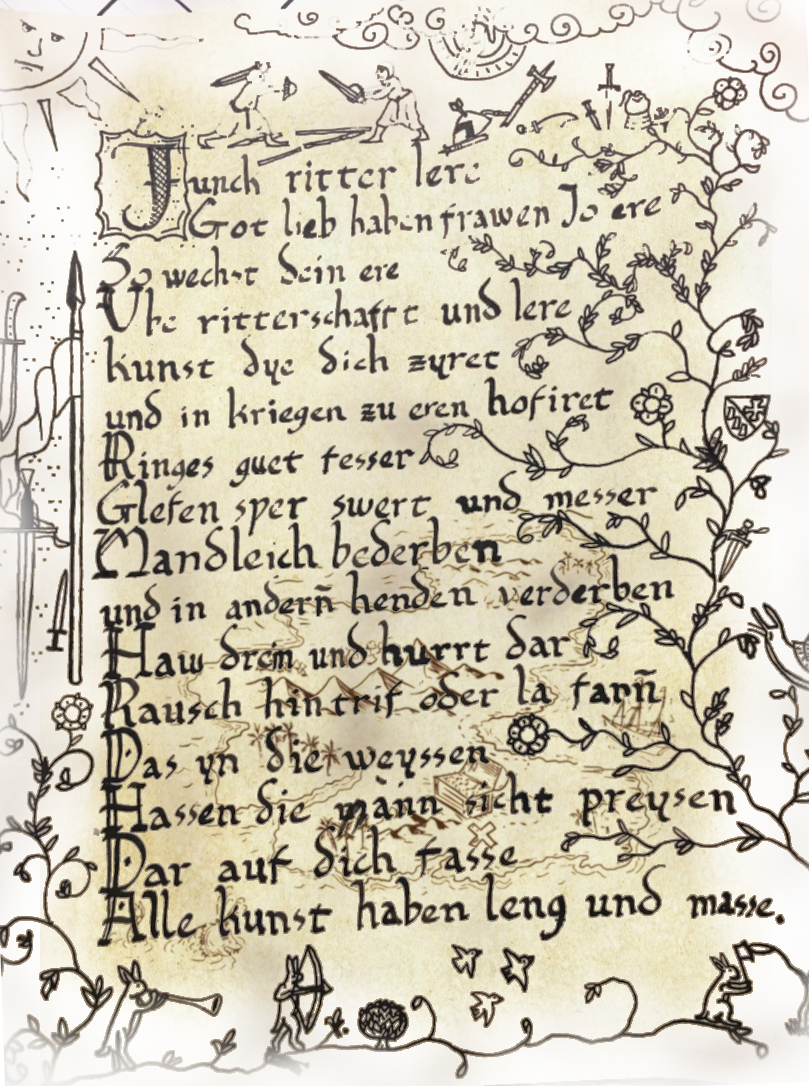 Junck ritter lere
Got lieb haben frawen Jo ere
So wechst dein ere
Vbe ritterschafft und lere
kunst dye dich zyret
und in kriegen zu eren hofiret
Ringes guet fesser
Glefen sper swert und messer
Mandleich bederben
und in andern̄ henden verderben
Haw drein und hurrt dar
Rausch hin trif oder la farn̄
Das yn die weyssen
Hassen die mann sicht preysen
Dar auf dich fasse
Alle kunst haben leng und masse.